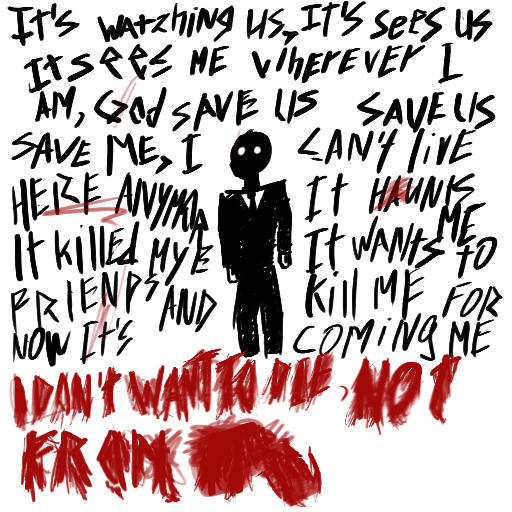 It's watching us, It's sees us
It sees ME wherever I
AM, God SAVE US SAVE US
SAVE ME, I CAN'T live
HERE ANYMOR It HAUNTS
ME
It killed MYE It WANTS TO
FRIENDS AND kill ME FOR
NOW It's COMING ME
I DON'T WANT TO DIE, NOT
FROM